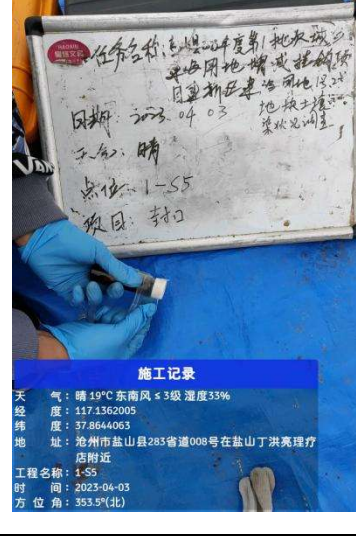 HAOMU
任务名称:盐山县2022年度第1批次城乡
建设用地增减挂钩项
目建新区建设用地1号
地块土壤污
染状况调查
日期: 2023.04.03
天气: 晴
点位: 1-S5
项目: 封口
施工记录
天 气:晴 19℃ 东南风 ≤ 3级 湿度33%
经 度:117.1362005
纬 度:37.8644063
地 址:沧州市盐山县283省道008号在盐山丁洪亮理疗
店附近
工程名称:1-S5
时 间:2023-04-03
方 位 角:353.5°(北)